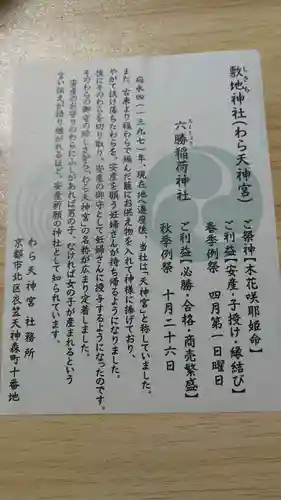 敷地神社(わら天神宮)
しきち
ご祭神【木花咲耶姫命】
ご利益【安産・子授け・縁結び】
春季例祭 四月第一日曜日
六勝稲荷神社
ご利益【必勝・合格・商売繁盛】
秋季例祭 十月二十六日
応永四(一三九七)年、現在地へ遷宮後、当社は「天神宮」と称していました。
また、古来より稲わらで編んだ籠にお供え物を入れて神様に捧げており、
やがて抜け落ちたわらを、安産を願う妊婦さんが持ち帰るようになりました。
後にそのわらを切り取り、安産の御守として妊婦さんに授与するようになったのです。
そのわらの御守の珍しさから、「わら天神宮」の名称が広まり定着しました。
安産のお守りのわらにふしがあれば男の子、なければ女の子が産まれるという
言い伝えが語り継がれるほど、安産祈願の神社として知られています。
わら天神宮 社務所
京都市北区衣笠天神森町十番地